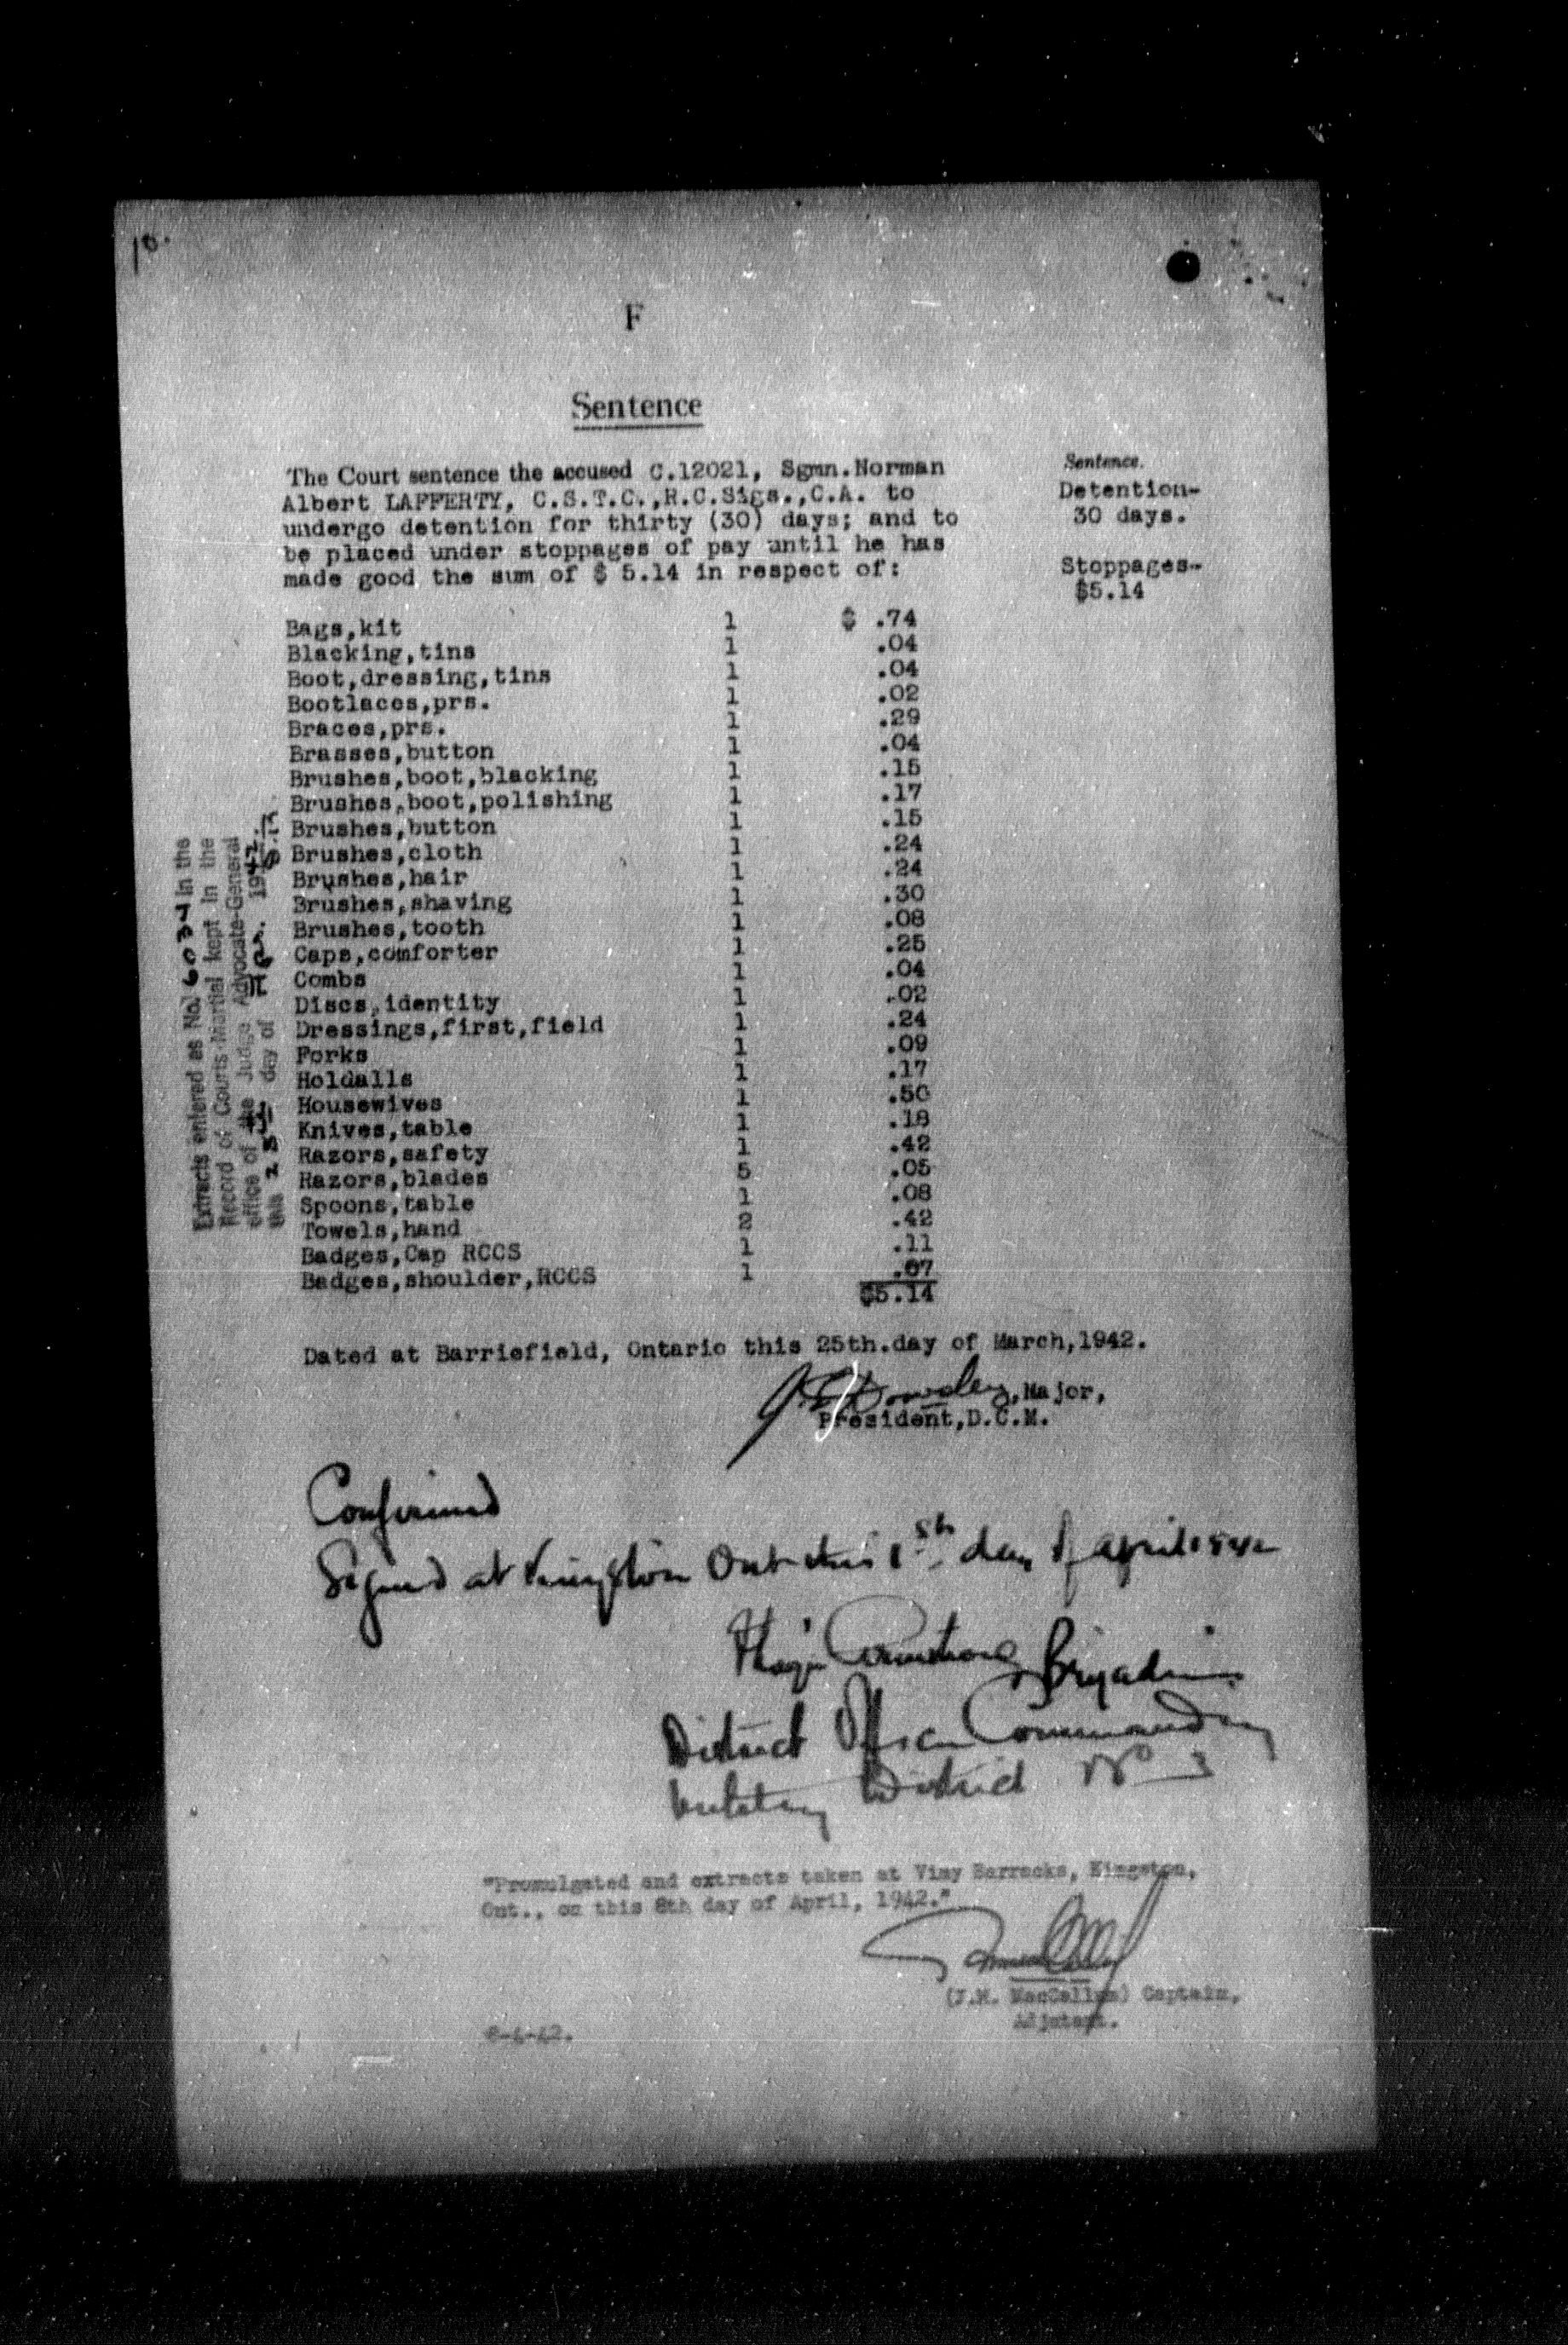 10.
F
Sentence
The Court sentence the accused C.12021, Sgmn.Norman
Albert LAFFERTY, C.S.T.C.,R.C.Sigs.,C.A. to
undergo detention for thirty (30) days; and to
be placed under stoppages of pay until he has
made good the sum of $ 5.14 in respect of:
Sentence.
Detention-
30 days.
Stoppages-
$5.14
Bags,kit 1 $ .74
Blacking,tins 1 .04
Boot,dressing,tins 1 .04
Bootlaces,prs. 1 .02
Braces,prs. 1 .29
Brasses,button 1 .04
Brushes,boot,blacking 1 .15
Brushes,boot,polishing 1 .17
Brushes,button 1 .15
Brushes,cloth 1 .24
Brushes,hair 1 .24
Brushes,shaving 1 .30
Brushes,tooth 1 .08
Caps,comforter 1 .25
Combs 1 .04
Discs,identity 1 .02
Dressings,first,field 1 .24
Forks 1 .09
Holdalls 1 .17
Housewives 1 .50
Knives,table 1 .18
Razors,safety 1 .42
Razors,blades 5 .05
Spoons,table 1 .08
Towels,hand 2 .42
Badges,Cap RCCS 1 .11
Badges,shoulder,RCCS 1 .07
$5.14
Extracts entered as No. 6037 in the
Record of Courts-Martial kept in the
office of the Judge Advocate-General
this 28th day of 1942.
Dated at Barriefield, Ontario this 25th.day of March,1942.
,Major,
President,D.C.M.
Confirmed
Signed at Kingston Ont this 1st day of April 1942
Armstrong Brigadier
District Officer Commanding
Military District No 3
"Promulgated and extracts taken at Vimy Barracks, Kingston,
Ont., on this 8th day of April, 1942."
(J.M. MacCallum) Captain,
Adjutant.
8-4-42.